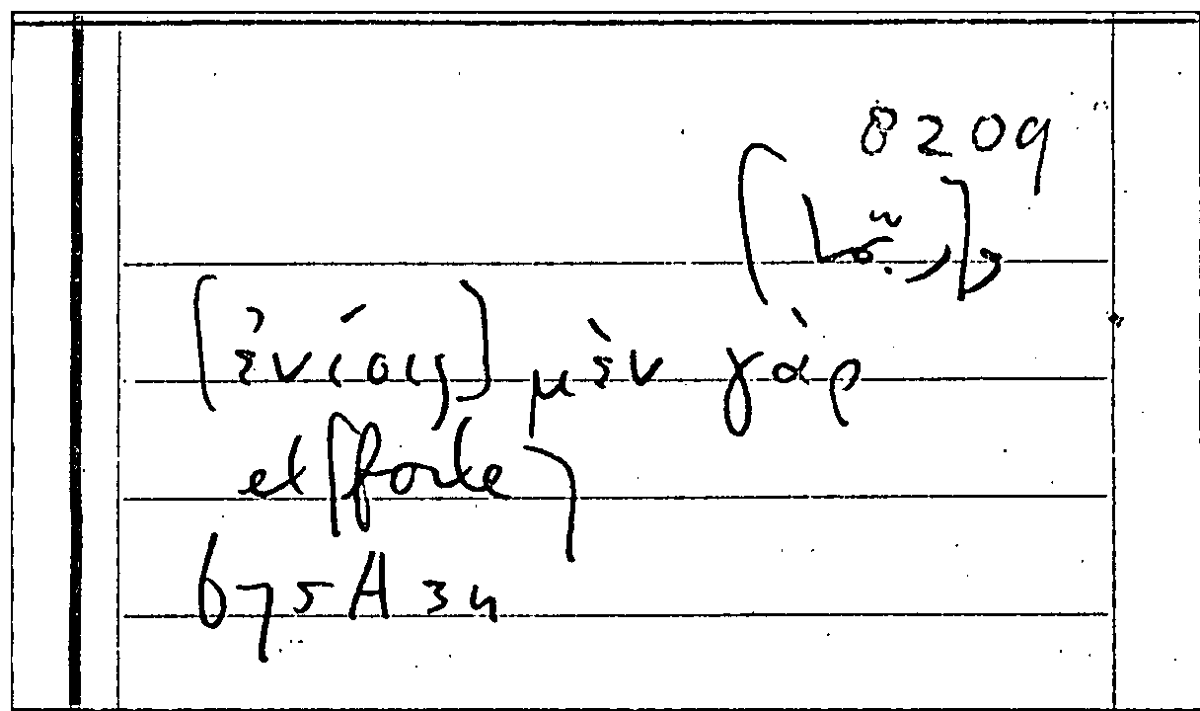 8209
[ἐνίοις] μὲν γὰρ
et [forte]
675A 34